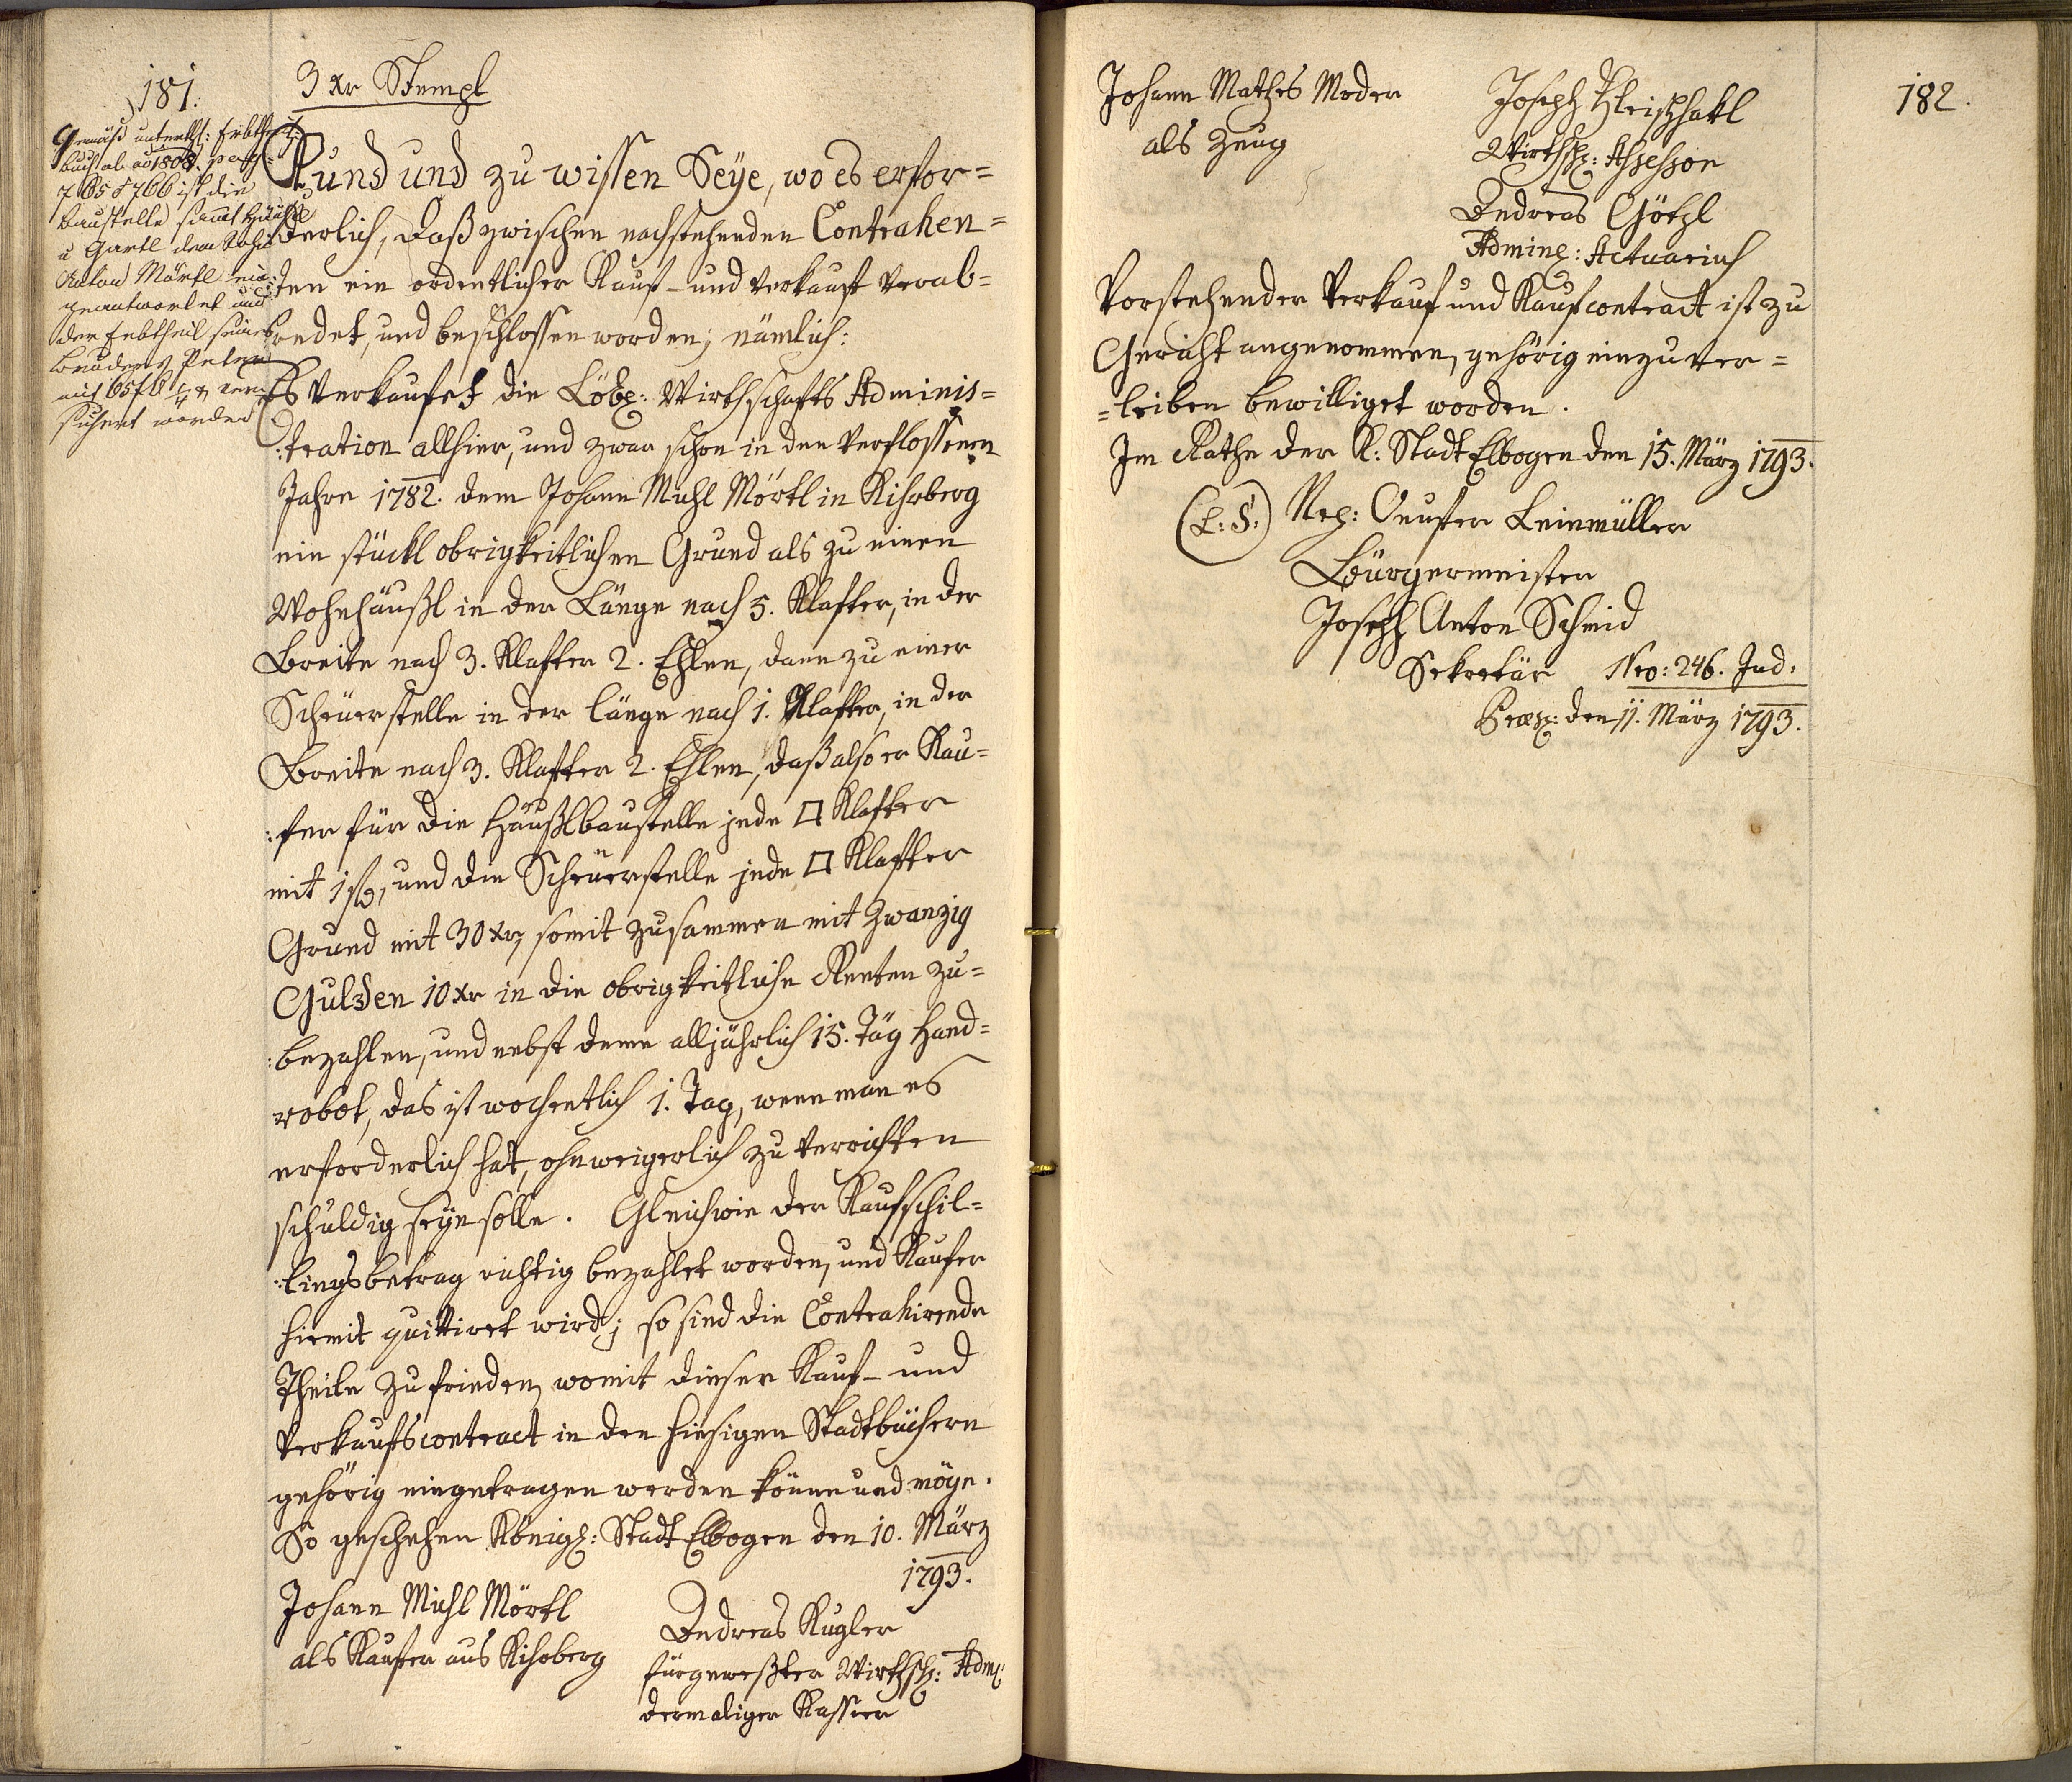 181.
3 xr Stempl
Gemäß unterth: Erbtheil:
buch ab ao 1808. pag:
765 & 766 ist die
Baustelle sammt Häusl
u Gartl dem Sohn
Anton Mörtl ein-
geantwortet und
der Erbtheil seines
Bruders Peter
mit 65 f 6 xr
sichert worden
Kund und zu wissen Seÿe, wo es erfor=
derlich, daß zwischen nachstehenden Contrahen=
:ten ein ordentlicher Kauf- und Verkauf verab=
redet, und beschlossen worden; nämlich:
Es Verkaufet die Löbl: Wirthschafts Adminis=
:tration allhier, und zwar schon in den Verflossenen
Jahre 1782. dem Johann Michl Mörtl in Kihrberg
ein stückl obrigkeitlichen Grund als zu einen
Wohnhäußl in der Länge nach 5. Klafter, in der
Breite nach 3. Klafter 2. Ehlen, dann zu einer
Scheüerstelle in der länge nach 1. Klafter, in der
Breite nach 3. Klafter 2. Ehlen, daß also er Kau=
:fer für die Häußlbaustelle jede □ Klafter
mit 1 f, und die Scheüerstelle jede □ Klafter
Grund mit 30 xr, somit zusammen mit Zwanzig
Gulden 10 xr in die obrigkeitliche Renten zu=
:bezahlen, und nebst deme alljährlich 15. Täg Hand=
robot, das ist wochentlich 1. Tag, wenn man es
erforderlich hat, ohnweigerlich zu verrichten
schuldig seÿn solle. Gleichwie der Kaufschil=
:lingsbetrag richtig bezahlet worden, und Kaufer
hiemit quittiret wird; so sind die Contrahirende
Theile zufrieden, womit dieser Kauf- und
Verkaufscontract in den hiesigen Stadtbüchern
gehörig eingetragen werden könne und möge.
So geschehen Königl: Stadt Elbogen den 10. März
1793.
Johann Michl Mörtl
als Kaufer aus Kihrberg
Andreas Kugler
fürgeweßter Wirthsch: Adm:
dermaliger Kassier
182.
Johann Mathes Moder
als Zeug
Joseph Fleischhakl
Wirthsch: Assessor
Andreas Götzl
Adming: Actuarius
Vorstehender Verkauf und Kaufcontract ist zu
Gericht angenommen, gehörig einzuver=
=leiben bewilliget worden.
Im Rathe der K: Stadt Elbogen den 15. März 1793.
(L: S:) Leinmüller
Bürgermeister
Joseph Anton Schmid
Sekretär
Nro: 246. Jud:
Præs: den 11. März 1793.